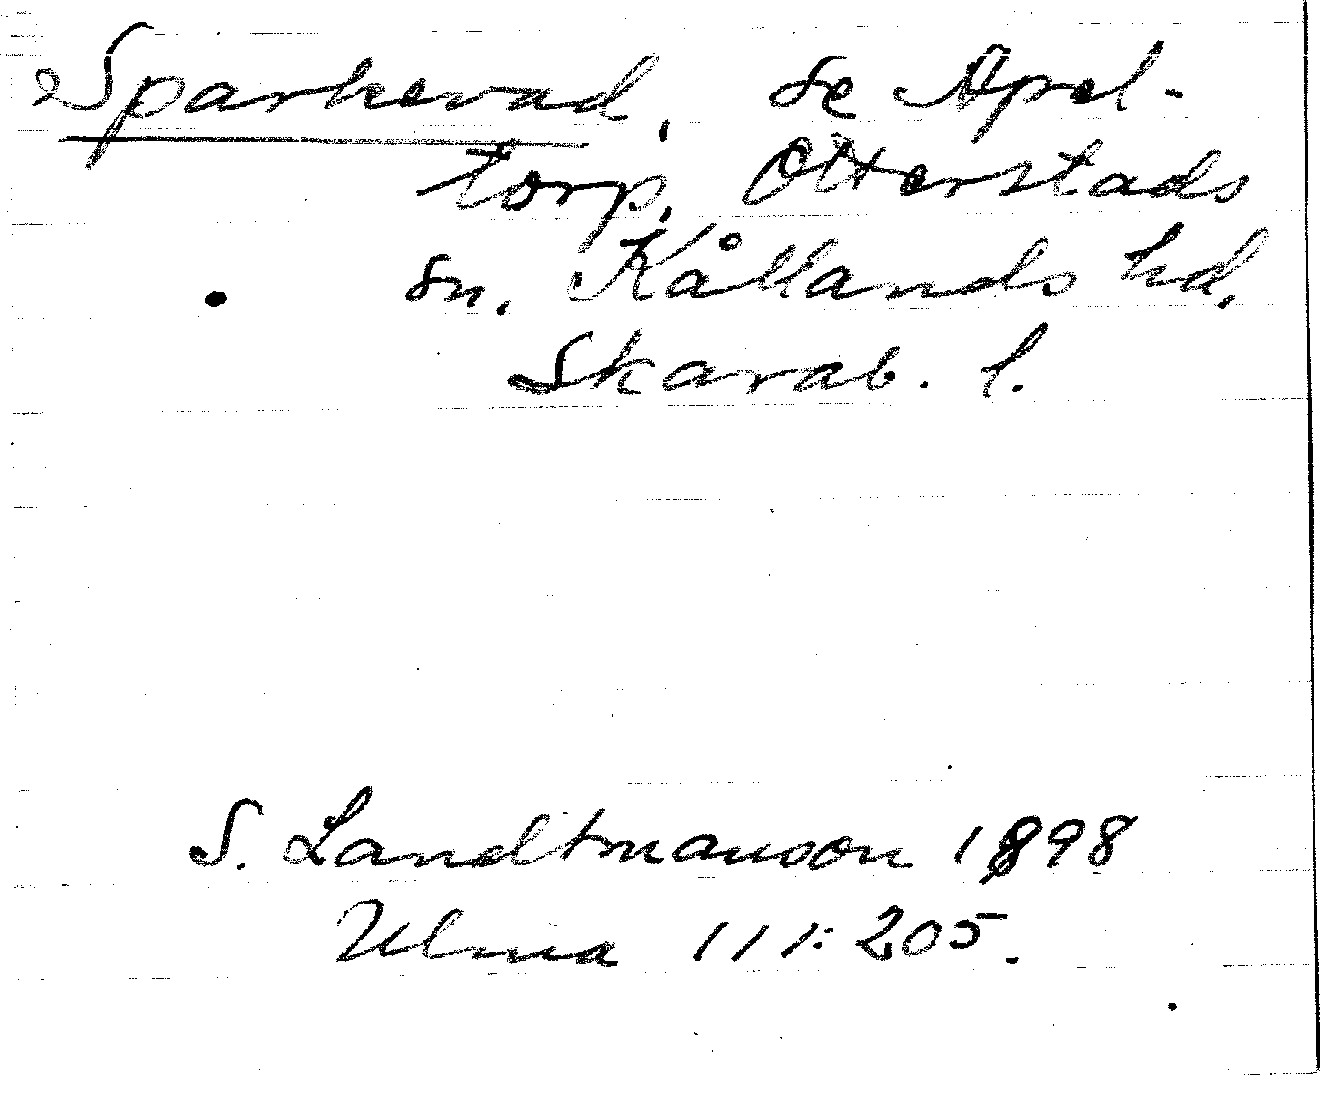 Sparkevad, se Apel-
torp, Otterstads
sn. Kållands hd,
Skarab. l.
S. Landtmanson 1898
Ulma 111:205.